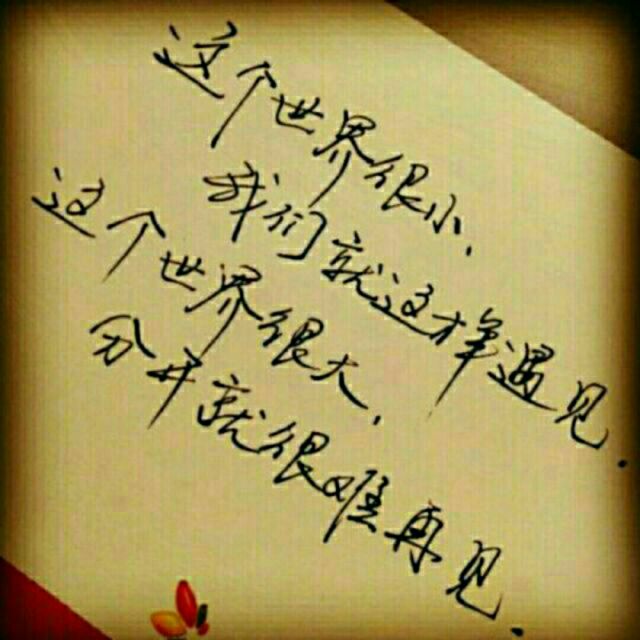 这个世界很小,
我们就这样遇见.
这个世界很大,
分开就很难再见.